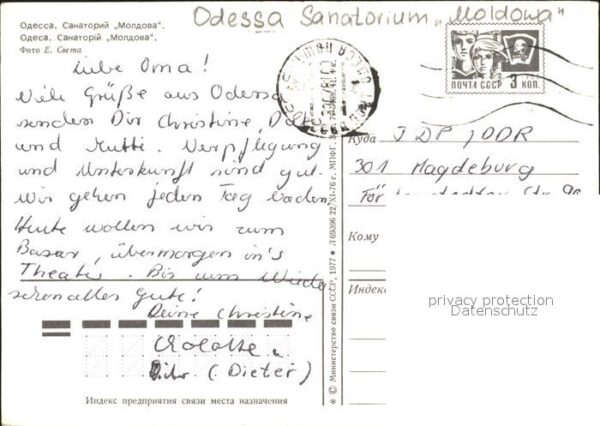 Odessa Sanatorium „Moldowa"
Одесса. Санаторий „Молдова".
Одеса. Санаторій „Молдова".
Фото Е. Света
Liebe Oma!
Viele Grüße aus Odessa
senden Dir Christine,
und Mutti. Verpflegung
und Unterkunft sind gut.
Wir gehen jeden Tag baden.
Heute wollen wir zum
Basar, übermorgen in's
Theater. Bis zum Wieder
sehen alles Gute!
Deine Christine
(Dieter)
Индекс предприятия связи места назначения
* © Министерство связи СССР, 1977 • Л 69396 22/XI-76 г. МПФГ.
ПОЧТА СССР 3 коп.
Куда JDP / DDR
301 Magdeburg
Кому
Индекс
privacy protection
Datenschutz